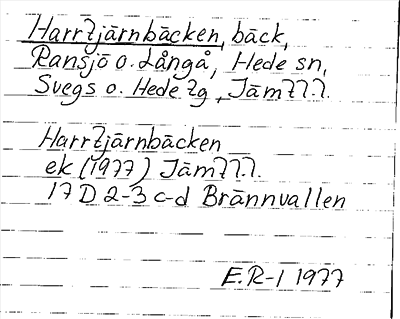 Harrtjärnbäcken, bäck,
Ransjö o. Långå, Hede sn,
Svegs o. Hede tg, Jämtl.l.
Harrtjärnbäcken
ek (1977) Jämtl.l.
17 D 2-3 c-d Brännvallen
E.R-l 1977